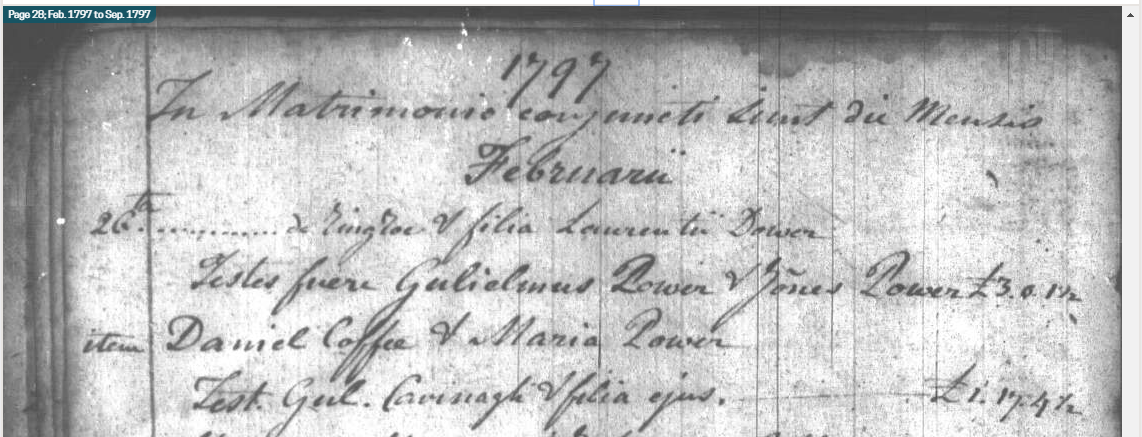 Page 28; Feb. 1797 to Sep. 1797
1797
In Matrimonio conjuncti sunt die Mensis
Februarii
26th ............ de & filia Laurentii Dower
Testes fuere Gulielmus Power & Jões Power £3.0.1½
item Daniel Coffee & Maria Power
Test. Gul. Cavinagh & filia ejus. £1.17.4½